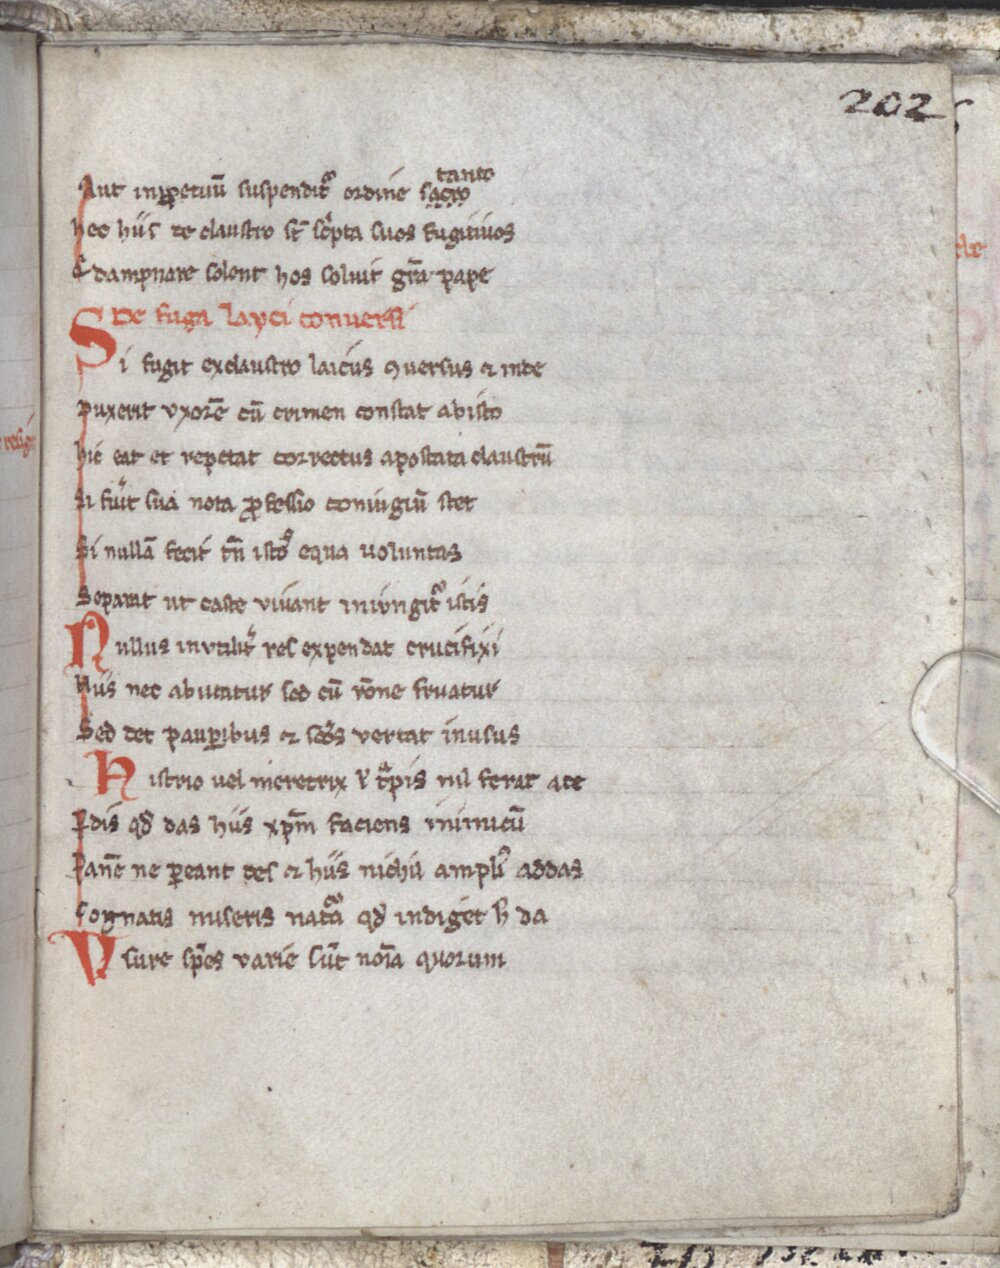 202
tanto
Aut inp̱petuū suspendit᷑ ordine sacro
hec hiis de claustro st̄ sc͛pta suos fugitiuos
Q̄ dampnare solent hos soluit gr̄a pape
De fuga layci conuersi
Si fugit exclaustro laicus ꝯuersus ⁊ inde
Duxerit vxorē cū crimen constat abisto
hic eat et repetat correctus apostata claustrū
Si fu͛it sua nota ꝓfessio coniugiū stet
Si nullā fecit tn̄ istoꝝ equa uoluntas
Separat ut caste viuant iniungit᷑ istis
Nullus inutilit͛ res expendat crucifixi
Hiis nec abutatur sed cū rōne fruatur
Sed det pauꝑibus ⁊ vertat inusus
Histrio uel meretrix ł t͛pis nil ferat ate
ꝑdis qd̄ das hiis xp̄m faciens inimicū
Panē ne ꝑeant des ⁊ hiis nichil ampli᷒ addas
Cognatis miseris qd̄ indiget h̄ da
Vsure sp̄es varie sūt noīa quorum